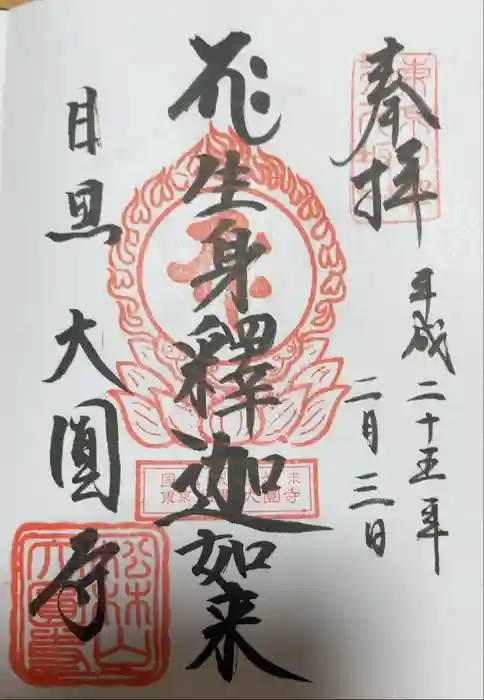 奉拝
平成二十五年
二月三日
生身釋迦如来
目黒 大圓寺
松林山
大圓寺